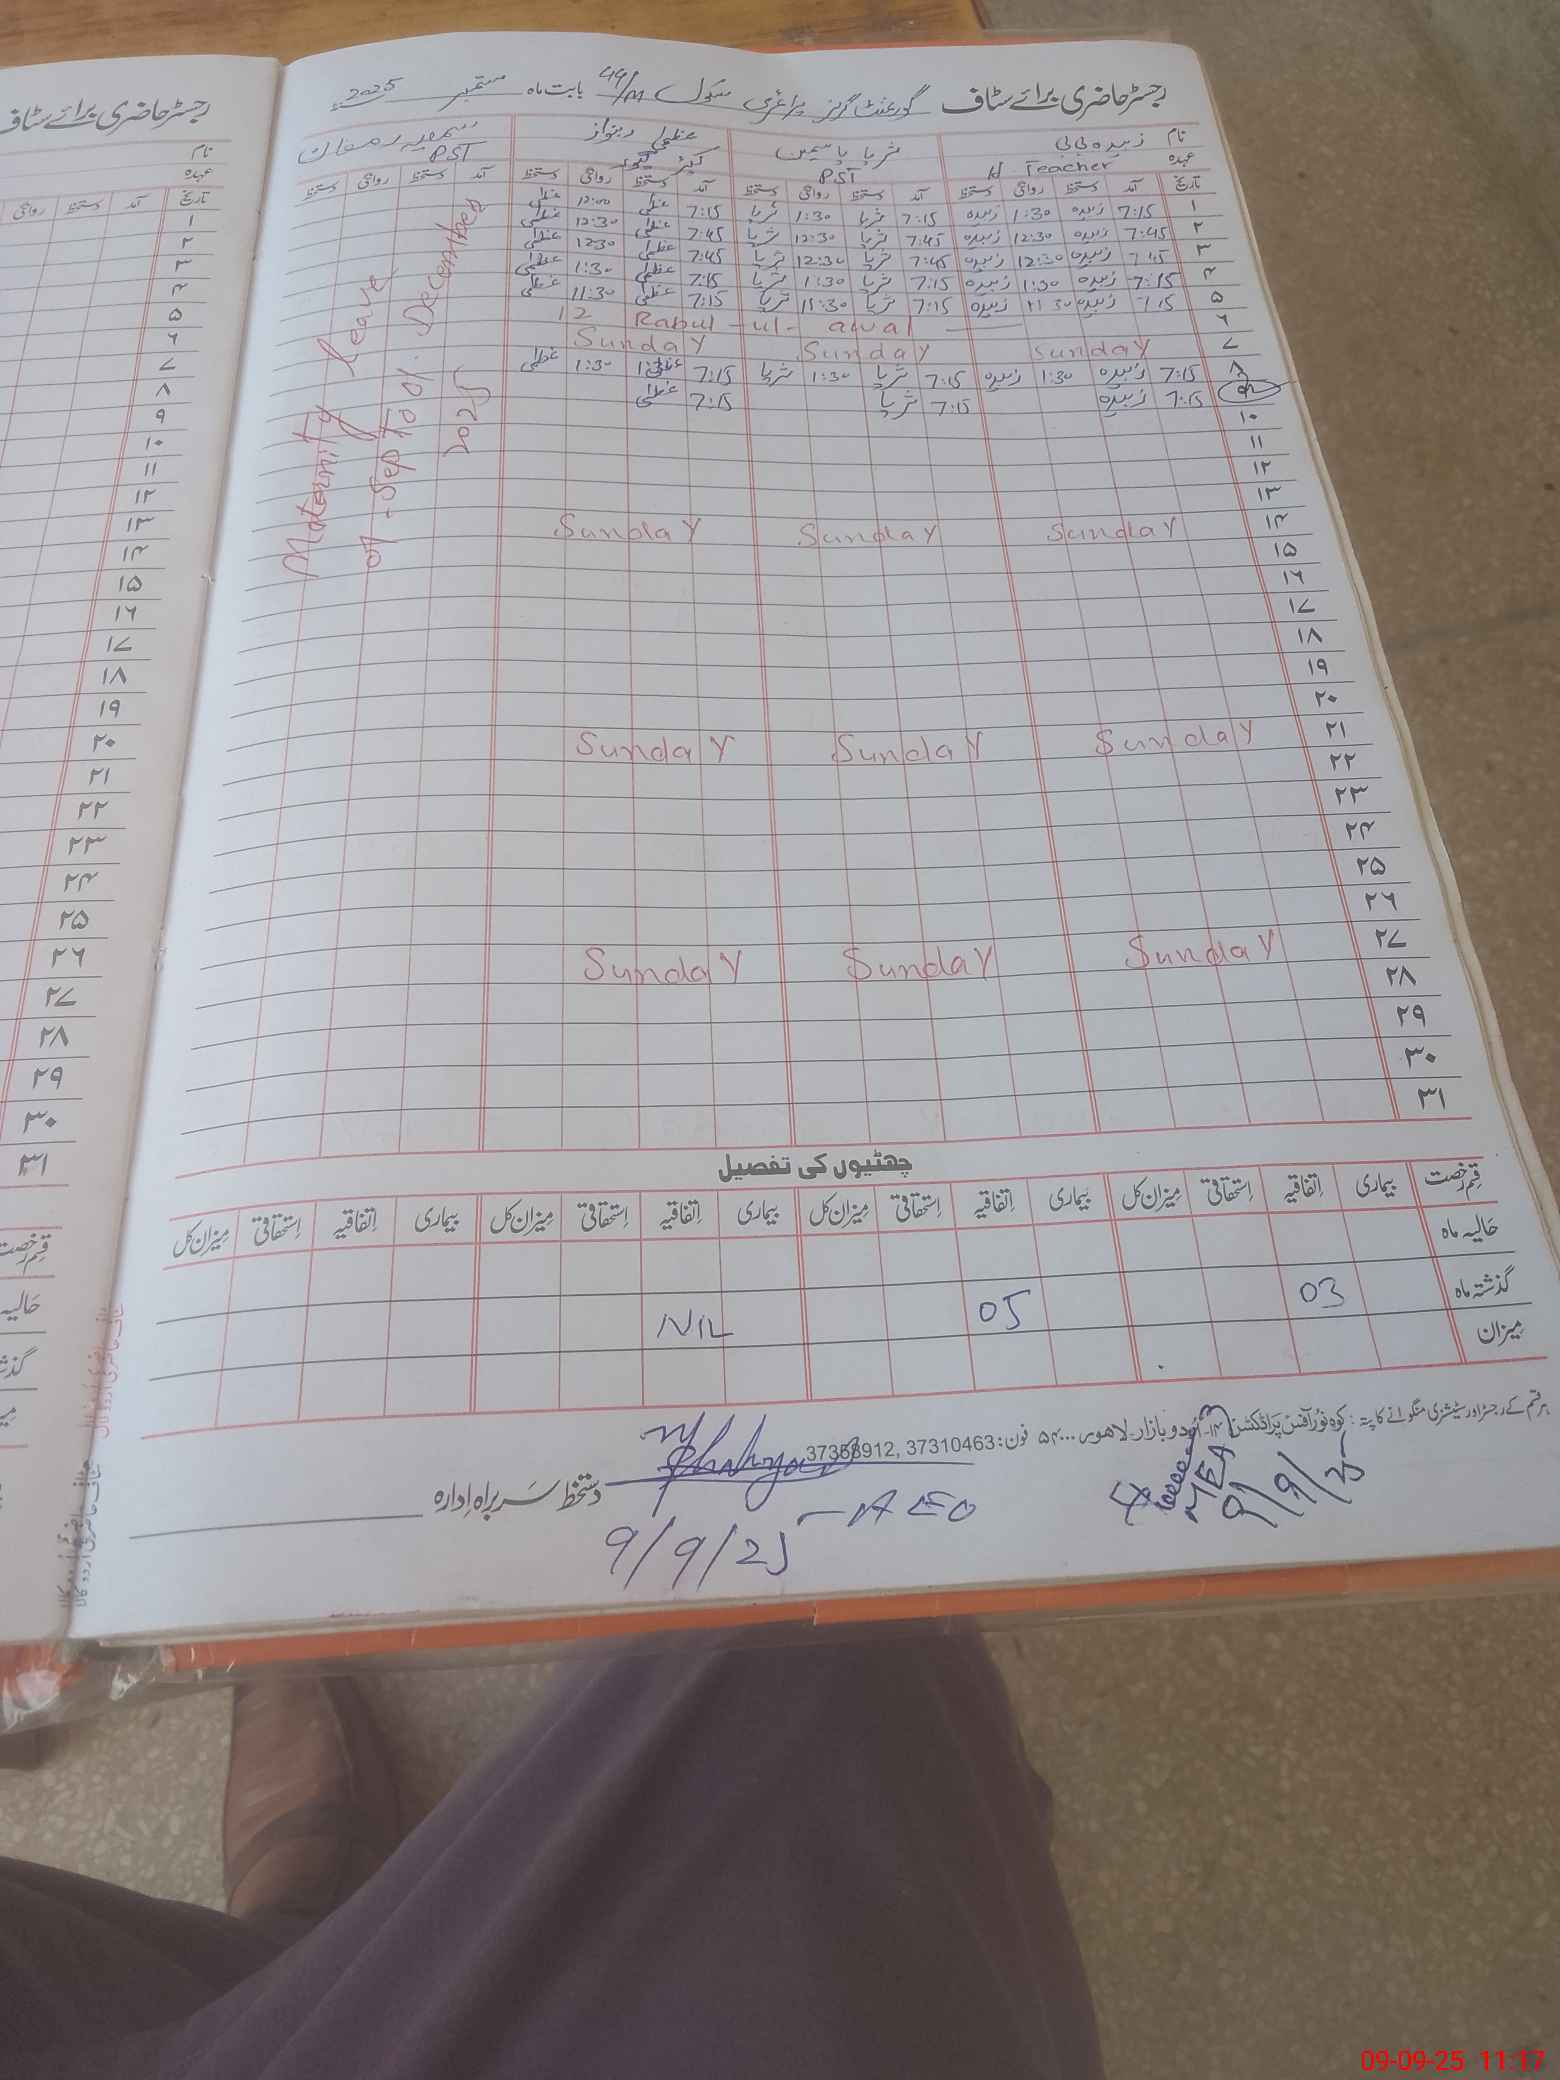 رجسٹر حاضری برائے سٹاف گورنمنٹ گرلز پرائمری سکول 44/M بابت ماہ ستمبر 2025
نام زبیدہ بی بی ثریا یاسمین عظمیٰ ربنواز سمعیہ رمضان
عہدہ H Teacher PST PST
تاریخ آمد دستخط روانگی دستخط آمد دستخط روانگی دستخط آمد دستخط روانگی دستخط آمد دستخط روانگی دستخط
۱ 7:15 زبیدہ 1:30 زبیدہ 7:15 ثریا 1:30 ثریا 7:15 عظمیٰ 12:00 عظمیٰ
۲ 7:45 زبیدہ 12:30 زبیدہ 7:45 ثریا 12:30 ثریا 7:45 عظمیٰ 12:30 عظمیٰ
۳ 7:45 زبیدہ 12:30 زبیدہ 7:45 ثریا 12:30 ثریا 7:45 عظمیٰ 1230 عظمیٰ
۴ 7:15 زبیدہ 1:30 زبیدہ 7:15 ثریا 1:30 ثریا 7:15 عظمیٰ 1:30 عظمیٰ
۵ 7:15 زبیدہ 11:30 زبیدہ 7:15 ثریا 11:30 ثریا 7:15 عظمیٰ 11:30 عظمیٰ
۶ 12 Rabul-ul-awal
۷ Sunday Sunday Sunday
۸ 7:15 زبیدہ 1:30 زبیدہ 7:15 ثریا 1:30 ثریا 7:15 عظمیٰ 1:30 عظمیٰ
7:15 زبیدہ 7:15 ثریا 7:15 عظمیٰ
Maternity leave
01-Sep To 01. December
2025
۱۰
۱۱
۱۲
۱۳
۱۴ Sunday Sunday Sunday
۱۵
۱۶
۱۷
۱۸
۱۹
۲۰
۲۱ Sunday Sunday Sunday
۲۲
۲۳
۲۴
۲۵
۲۶
۲۷
۲۸ Sunday Sunday Sunday
۲۹
۳۰
۳۱
چھٹیوں کی تفصیل
قسم رخصت بیماری اتفاقیہ استحقاقی میزان کل بیماری اتفاقیہ استحقاقی میزان کل بیماری اتفاقیہ استحقاقی میزان کل بیماری اتفاقیہ استحقاقی میزان کل
حالیہ ماہ
گذشتہ ماہ 03 05 NIL
میزان
ہر قسم کے رجسٹر اور سٹیشنری منگوانے کا پتہ: کوہ نور آفس پراڈکشن ۱۴- اُردو بازار۔ لاہور ۵۴۰۰۰ فون: 37310463 ,37358912
دستخط سربراہ ادارہ
AEO
9/9/25
MEA
9/9/25
رجسٹر حاضری برائے سٹاف
نام
عہدہ
تاریخ آمد دستخط روانگی
۱
۲
۳
۴
۵
۶
۷
۸
۹
۱۰
۱۱
۱۲
۱۳
۱۴
۱۵
۱۶
۱۷
۱۸
۱۹
۲۰
۲۱
۲۲
۲۳
۲۴
۲۵
۲۶
۲۷
۲۸
۲۹
۳۰
۳۱
قسم رخصت
حالیہ
09-09-25 11:17